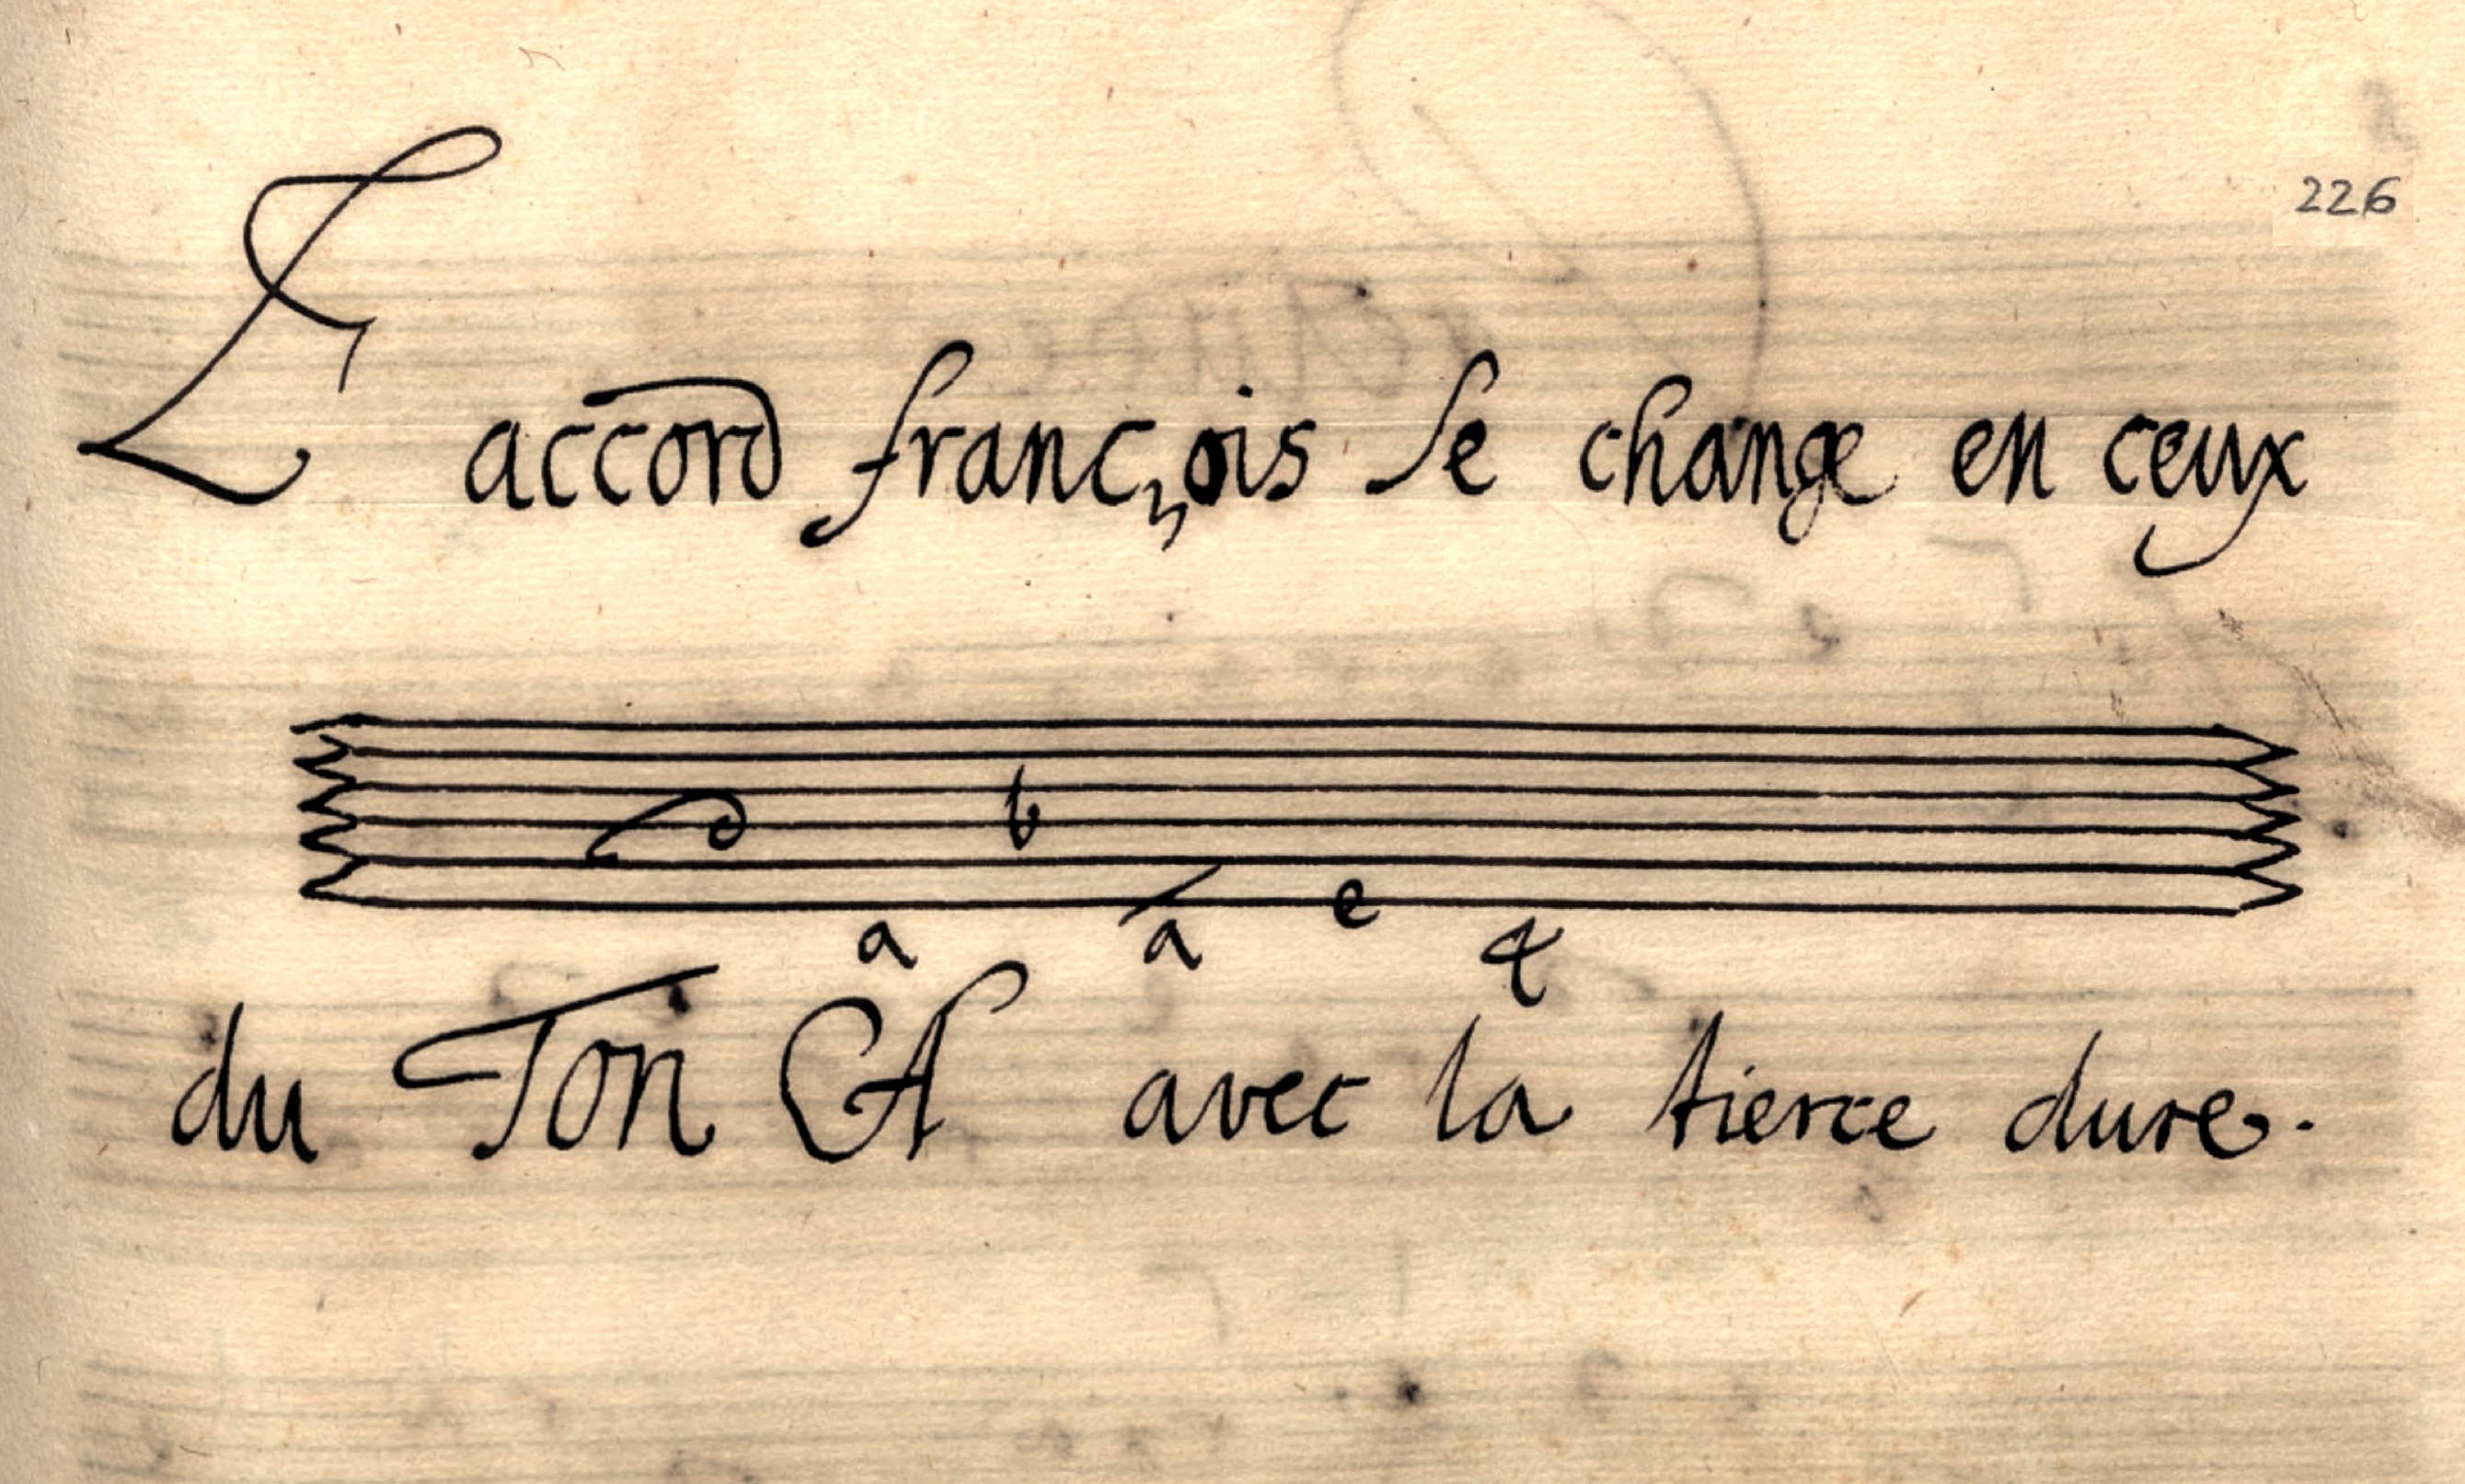 226
L accord françois se change en ceux
b
a a e 4
du Ton A avec la tierce dure.